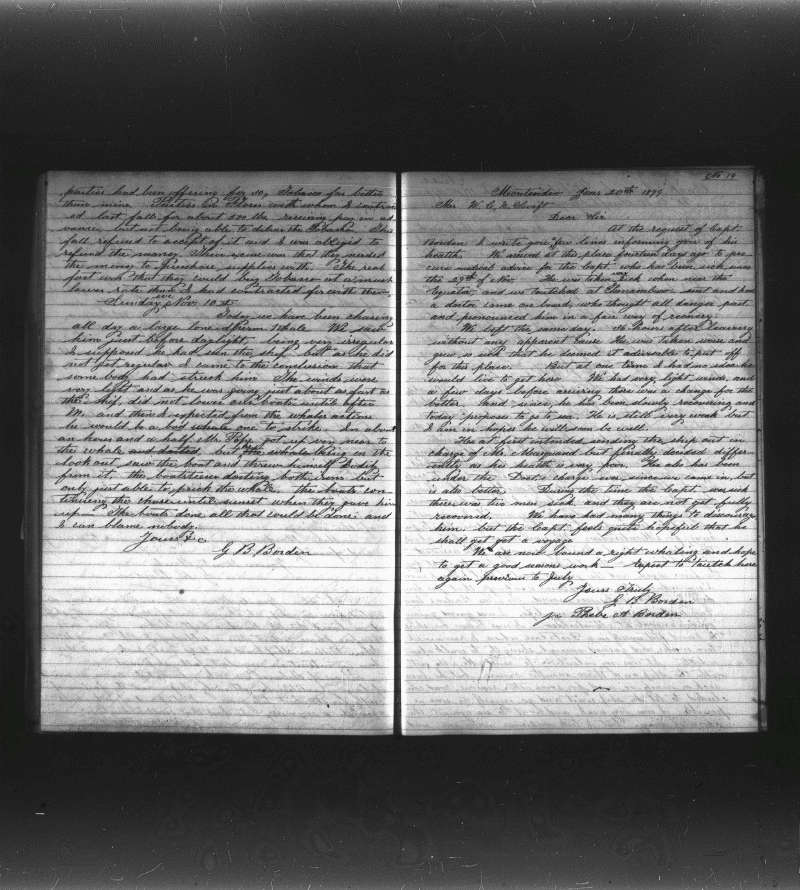 parties had been offering for so, Tobacco far better
than mine Parties in Flores with whom I contract
ed last fall for about 500 lbs receiving pay in ad
vance but not being able to deliver the Tobacco. This
fall refused to accept of it and I was obliged to
refund the money. Their excuse was that they needed
the money to purchase supplies with The real
fact was that they could buy Tobacco at a much
lower rate than I had contracted for with them,
Sunday eve Nov. 10th
Today we have been chasing
all day a large lone Sperm Whale We saw
him just before daylight, being very irregular
I supposed he had seen the ship but as he did
not get regular I came to the conclusion that
some body had struck him The winds were
very light and as he was going just about as fast as
the ship did not lower our boats until after
M, and then I expected from the whales actions
he would be a bad whale one to strike In about
an hour and a half Mr. Pope got up very near to
the whale and darted but the whale being on the
look out saw the boat and threw himself bodily
from it. the boatsteerer darting both irons but
only just able to prick the whale. the boats con
tinuing the chase until sunset when they gave him
up The boats done all that could be done, and
I can blame nobody.
Yours &c
G B Borden
No 19
Montevideo Jany 20th 1879
Mr. W. C. N. Swift
Dear Sir
At the request of Capt.
Borden I write you few lines informing you of his
health. We arrived at this place fourteen days ago to pro
cure medical advice for the Capt. who has been sick since
the 29th of Nov. He was taken sick when near the
Equator, and we touched at Pernambuco, sent and had
a doctor come on board, who thought all danger past
and pronounced him in a fair way of recovery.
We left the same day. 36 hours after leaving
without any apparent cause He was taken worse and
grew so until that he deemed it advisable to put off
for this place. But at one time I had no idea he
would live to get here We had very light winds, and
a few days before arriving there was a change for the
better. And since, he has been slowly recovering and
today propose to go to sea. He is still very weak but
I am in hopes he will soon be well.
He at first intended sending the ship out in
charge of Mr Marquand but finally decided differ
ently as his health is very poor. He also has been
under the Doct's charge ever since we came in but
is also better. During the time the Capt. was sick
there was two men sick and they are not yet fully
recovered. We have had many things to discourage
him but the Capt feels quite hopeful that he
shall yet get a voyage
We are now bound a right whaling and hope
to get a good seasons work — expect to touch here
again previous to July
Yours Truly
G B Borden
pr Phebe A Borden